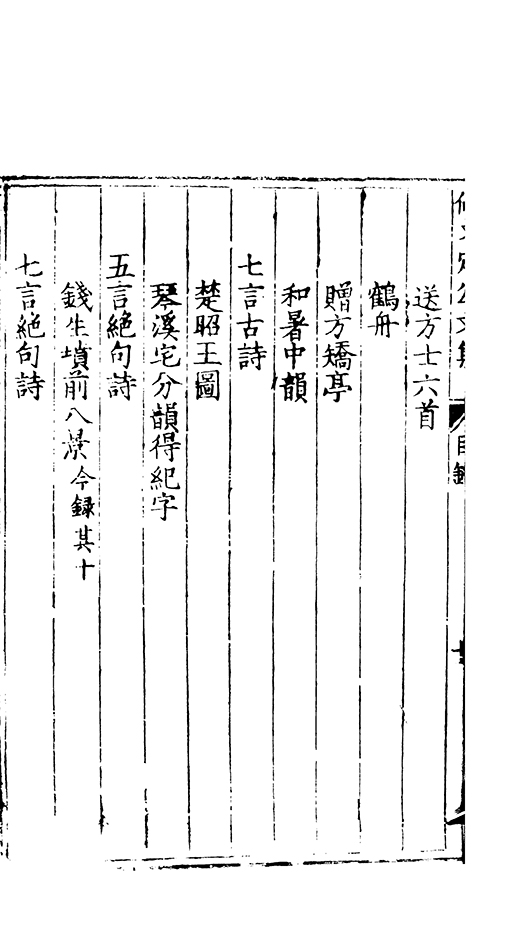 文定公文集 目錄
送方士六首
鶴舟
贈方矯亭
和暑中韻
七言古詩
楚昭王圖
琴溪宅分韻得紀字
五言絕句詩
錢生墳前八景今録其十
七言絕句詩